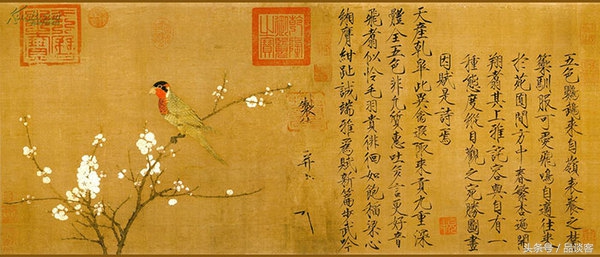 五色鸚鵡來自嶺表養之禁
籞馴服可愛飛鳴自適往來
於苑囿間方中春繁杏遍開
翔翥其上雅詫容與自有一
種態度縱目觀之宛勝圖畫
因賦是詩焉
天產乾皋此異禽遐陬來貢九重深
體全五色非凡質惠吐多言更好音
飛翥似憐毛羽貴徘徊如飽稻粱心
緗膺紺趾誠端雅爲賦新篇步武吟
製
并
头条号 / 品谈客